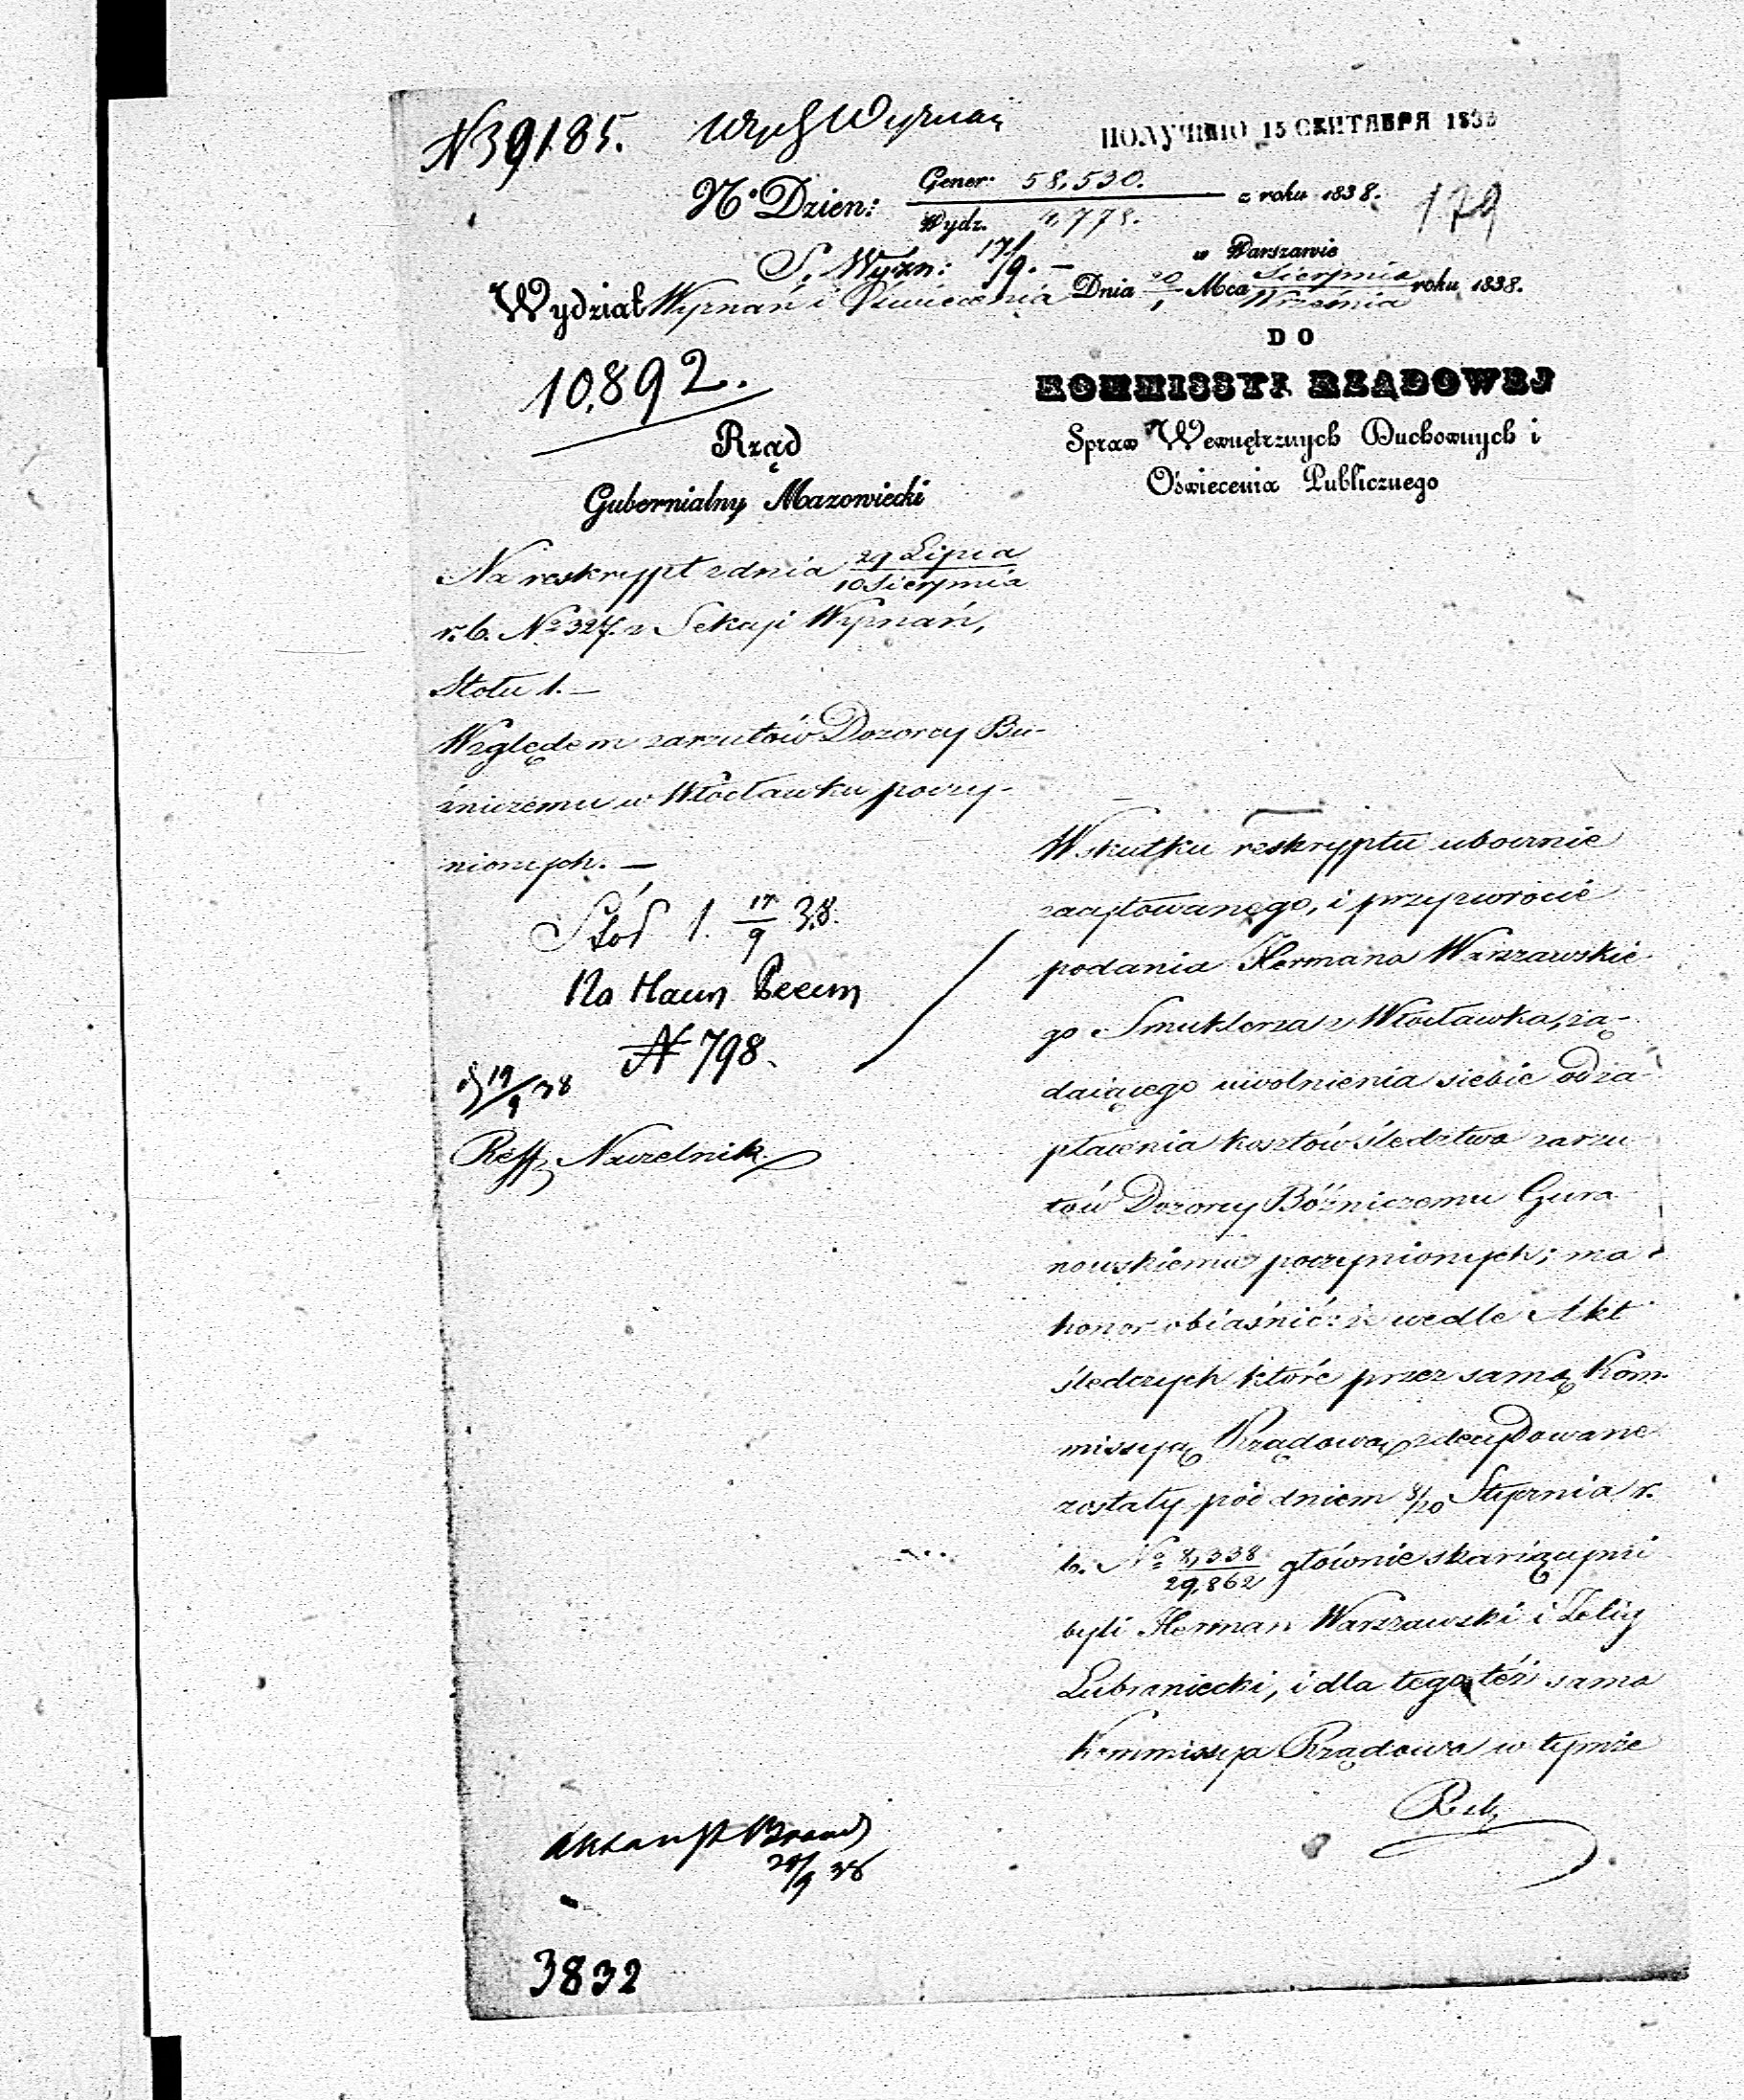 N 39185.
ПОЛУЧЕНО 15 СЕНТЯБРЯ 1838
179
No. Dzien: Gener. 58,530. z roku 1838.
Wydz. 4,778.
S. Wyzn: 17/9. —
w Warszawie
Wydział Wyznań i Oświecenia Dnia 20/1 Mca Sierpnia/Września roku 1838.
10,892.
DO
KOMMISSYI RZĄDOWEJ
Spraw Wewnętrznych Duchownych i
Oświecenia Publicznego
Rząd
Gubernialny Mazowiecki
Na reskrypt z dnia 29 Lipca/10 Sierpnia
r. b. No 327. z Sekcyi Wyznań,
Stołu 1. —
Względem zarzutów Dozorcy Bu-
źniczemu w Włocławku poczy-
nionych. —
1. 17/9 38.
N 798.
19/9 38
Naczelnik
Wskutku reskryptu ubocznie
zacytowanego, i przyzwrocie
podania Hermana Warszawskie-
go Smuklerza z Włocławka, żą-
daiącego uwolnienia siebie od za-
płacenia kosztów śledztwa zarzu
tów Dozorcy Bóźniczemu Gura
nowskiemu poczynionych; ma
honor obiaśnić: że wedle Akt
śledczych które przez samą Kom-
missyą Rządową zdecydowane
zostały pod dniem 8/20 Stycznia r.
b. No 8,338/29,862 głównie skarżącymi
byli Herman Warszawski i Zelig
Lubraniecki, i dla tego też sama
Kommissya Rządowa w tymże
Resk
29/9 38
3832